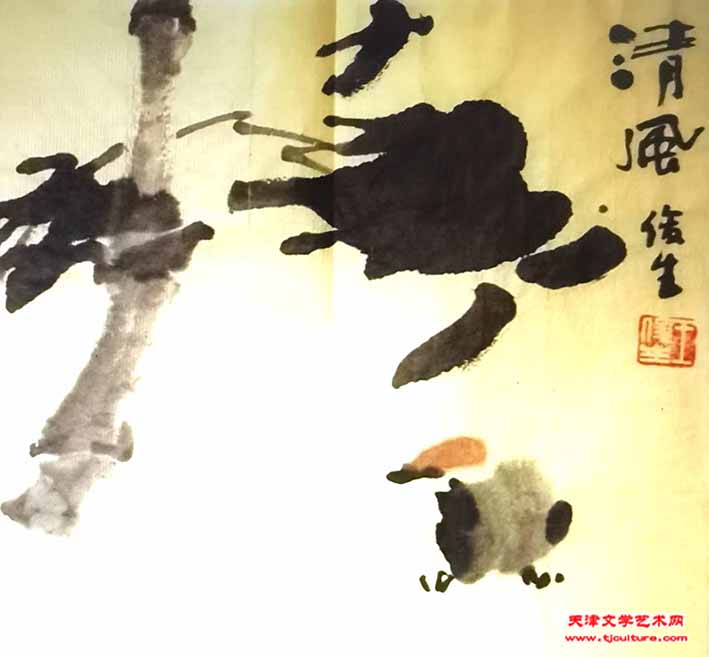 清風
俊生
王俊生
天津文学艺术网
www.tjculture.com